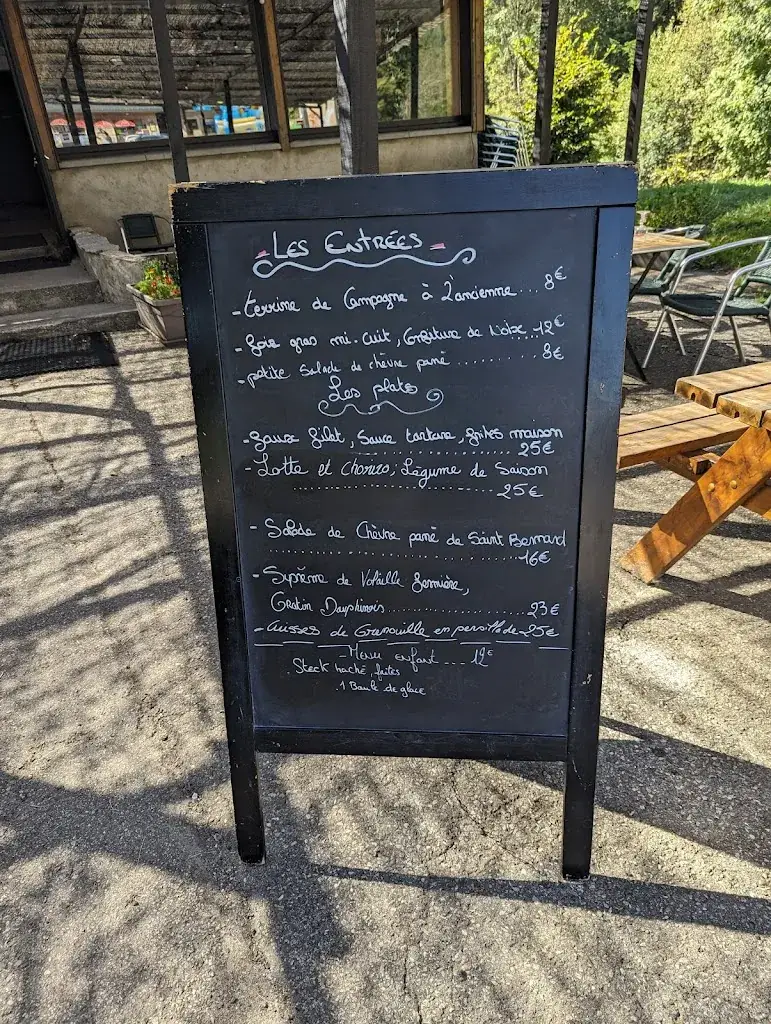 Les Entrées
- terrine de Campagne à l'ancienne... 8€
- foie gras mi.cuit, Confiture de 12€
- petite Salade de chèvre pané ........... 8€
Les plats
- filet, Sauce tartare, frites maison
............... 25€
- Lotte et chorizo, Légume de Saison
............................ 25€
- Salade de Chèvre pané de Saint Bernard
............................ 16€
- Suprême de Volaille fermière,
Gratin Dauphinois.................... 23€
- Cuisses de Grenouille en persillade - 25€
- Menu enfant ... 12€
. Steck haché, frites
. 1 Boule de glace